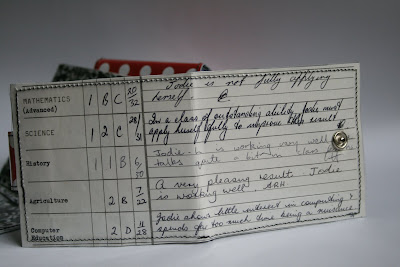 MATHEMATICS (Advanced) 1 B C 20/32 Jodie is not fully applying
herself
SCIENCE 1 2 C 28/31 In a class of outstanding ability, Jodie must
apply herself fully to improve this result
History 1 B 6/20 Jodie is working very well
talks quite a bit in class
Agriculture 2 B 7/22 A very pleasing result. Jodie
is working well.
Computer Education 2 D 11/28 Jodie shows little interest in computing &
spends far too much time being a nuisance